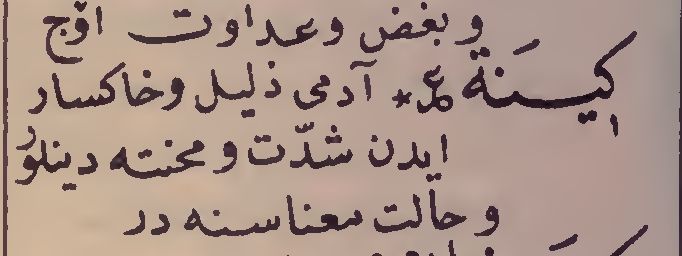 وبغض وعداوت اوج
كيسنة ع * آدمى ذليل وخاكسار
ايدن شدّت ومحنته دينلور
وحالت معناسنه در